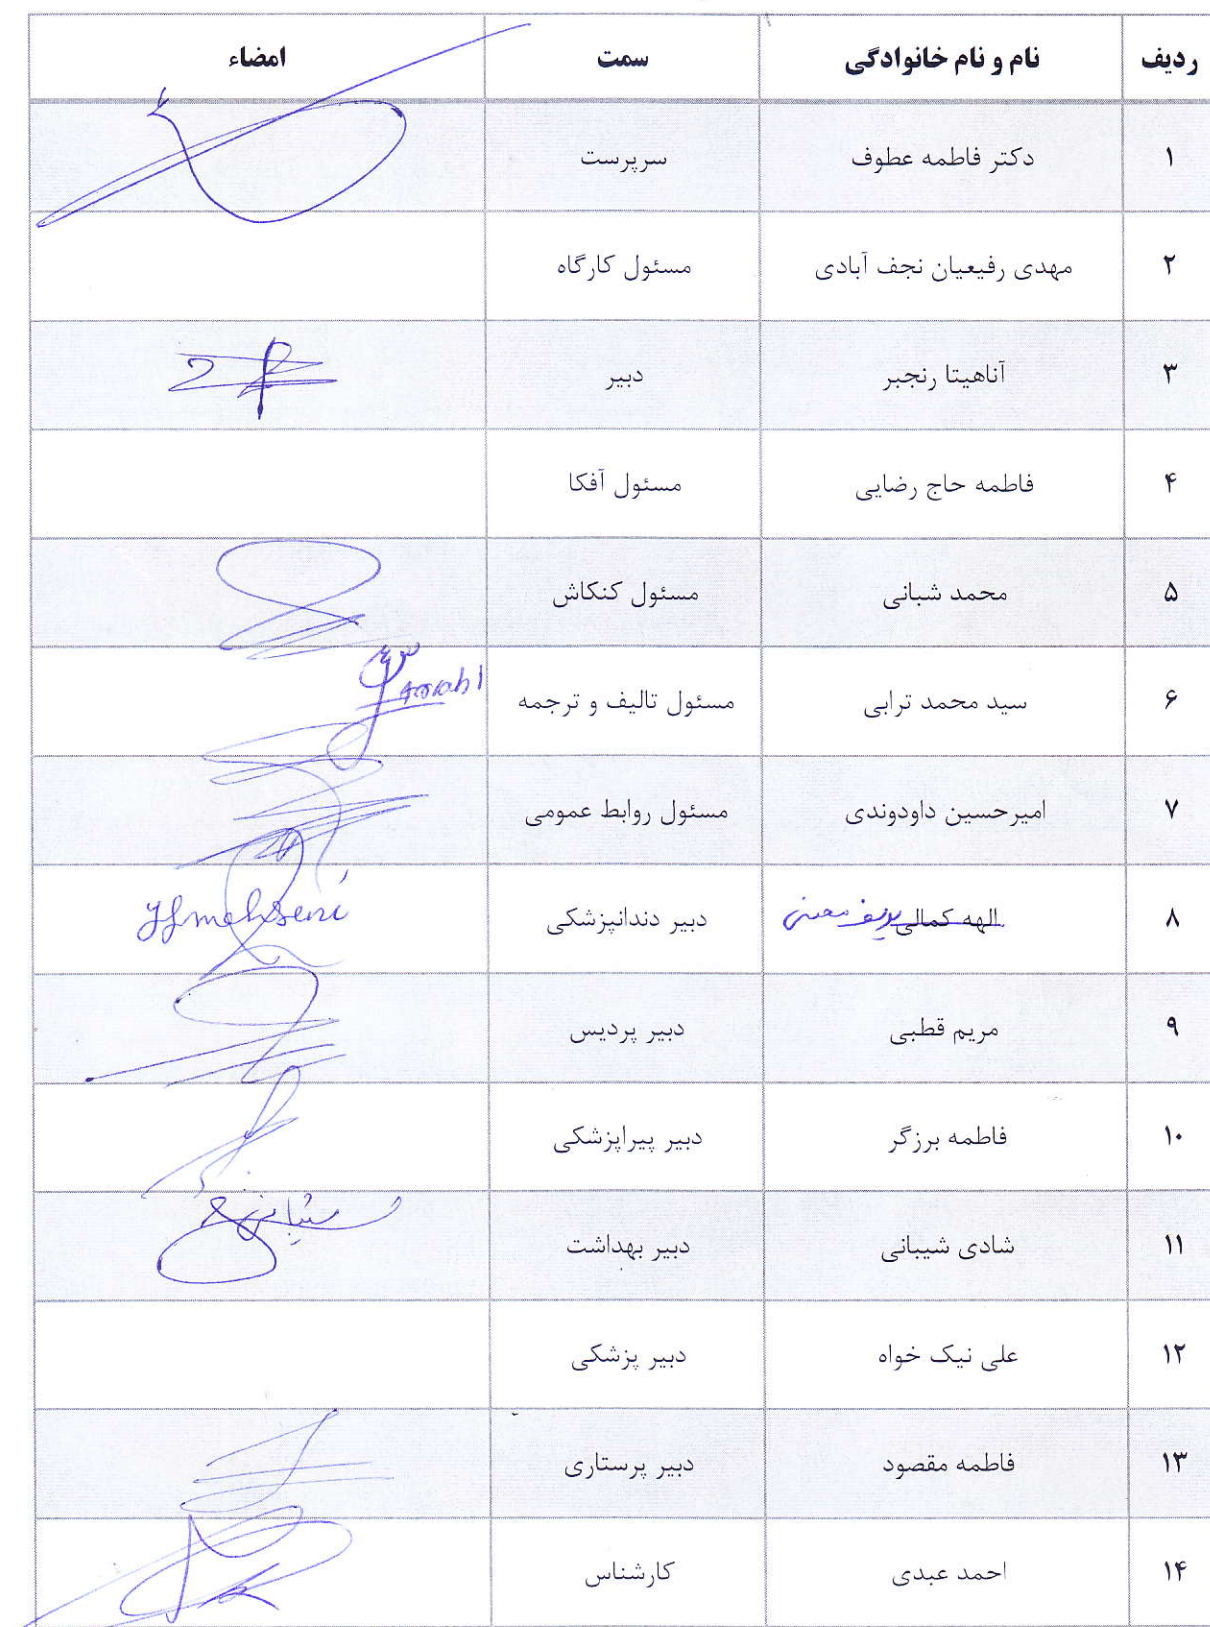 ردیف نام و نام خانوادگی سمت امضاء
۱ دکتر فاطمه عطوف سرپرست
۲ مهدی رفیعیان نجف آبادی مسئول کارگاه
۳ آناهیتا رنجبر دبیر
۴ فاطمه حاج رضایی مسئول آفکا
۵ محمد شبانی مسئول کنکاش
۶ سید محمد ترابی مسئول تالیف و ترجمه
۷ امیرحسین داودوندی مسئول روابط عمومی
۸ الهه کمالی یوسف محسنی دبیر دندانپزشکی
۹ مریم قطبی دبیر پردیس
۱۰ فاطمه برزگر دبیر پیراپزشکی
۱۱ شادی شیبانی دبیر بهداشت شیبانی
۱۲ علی نیک خواه دبیر پزشکی
۱۳ فاطمه مقصود دبیر پرستاری
۱۴ احمد عبدی کارشناس